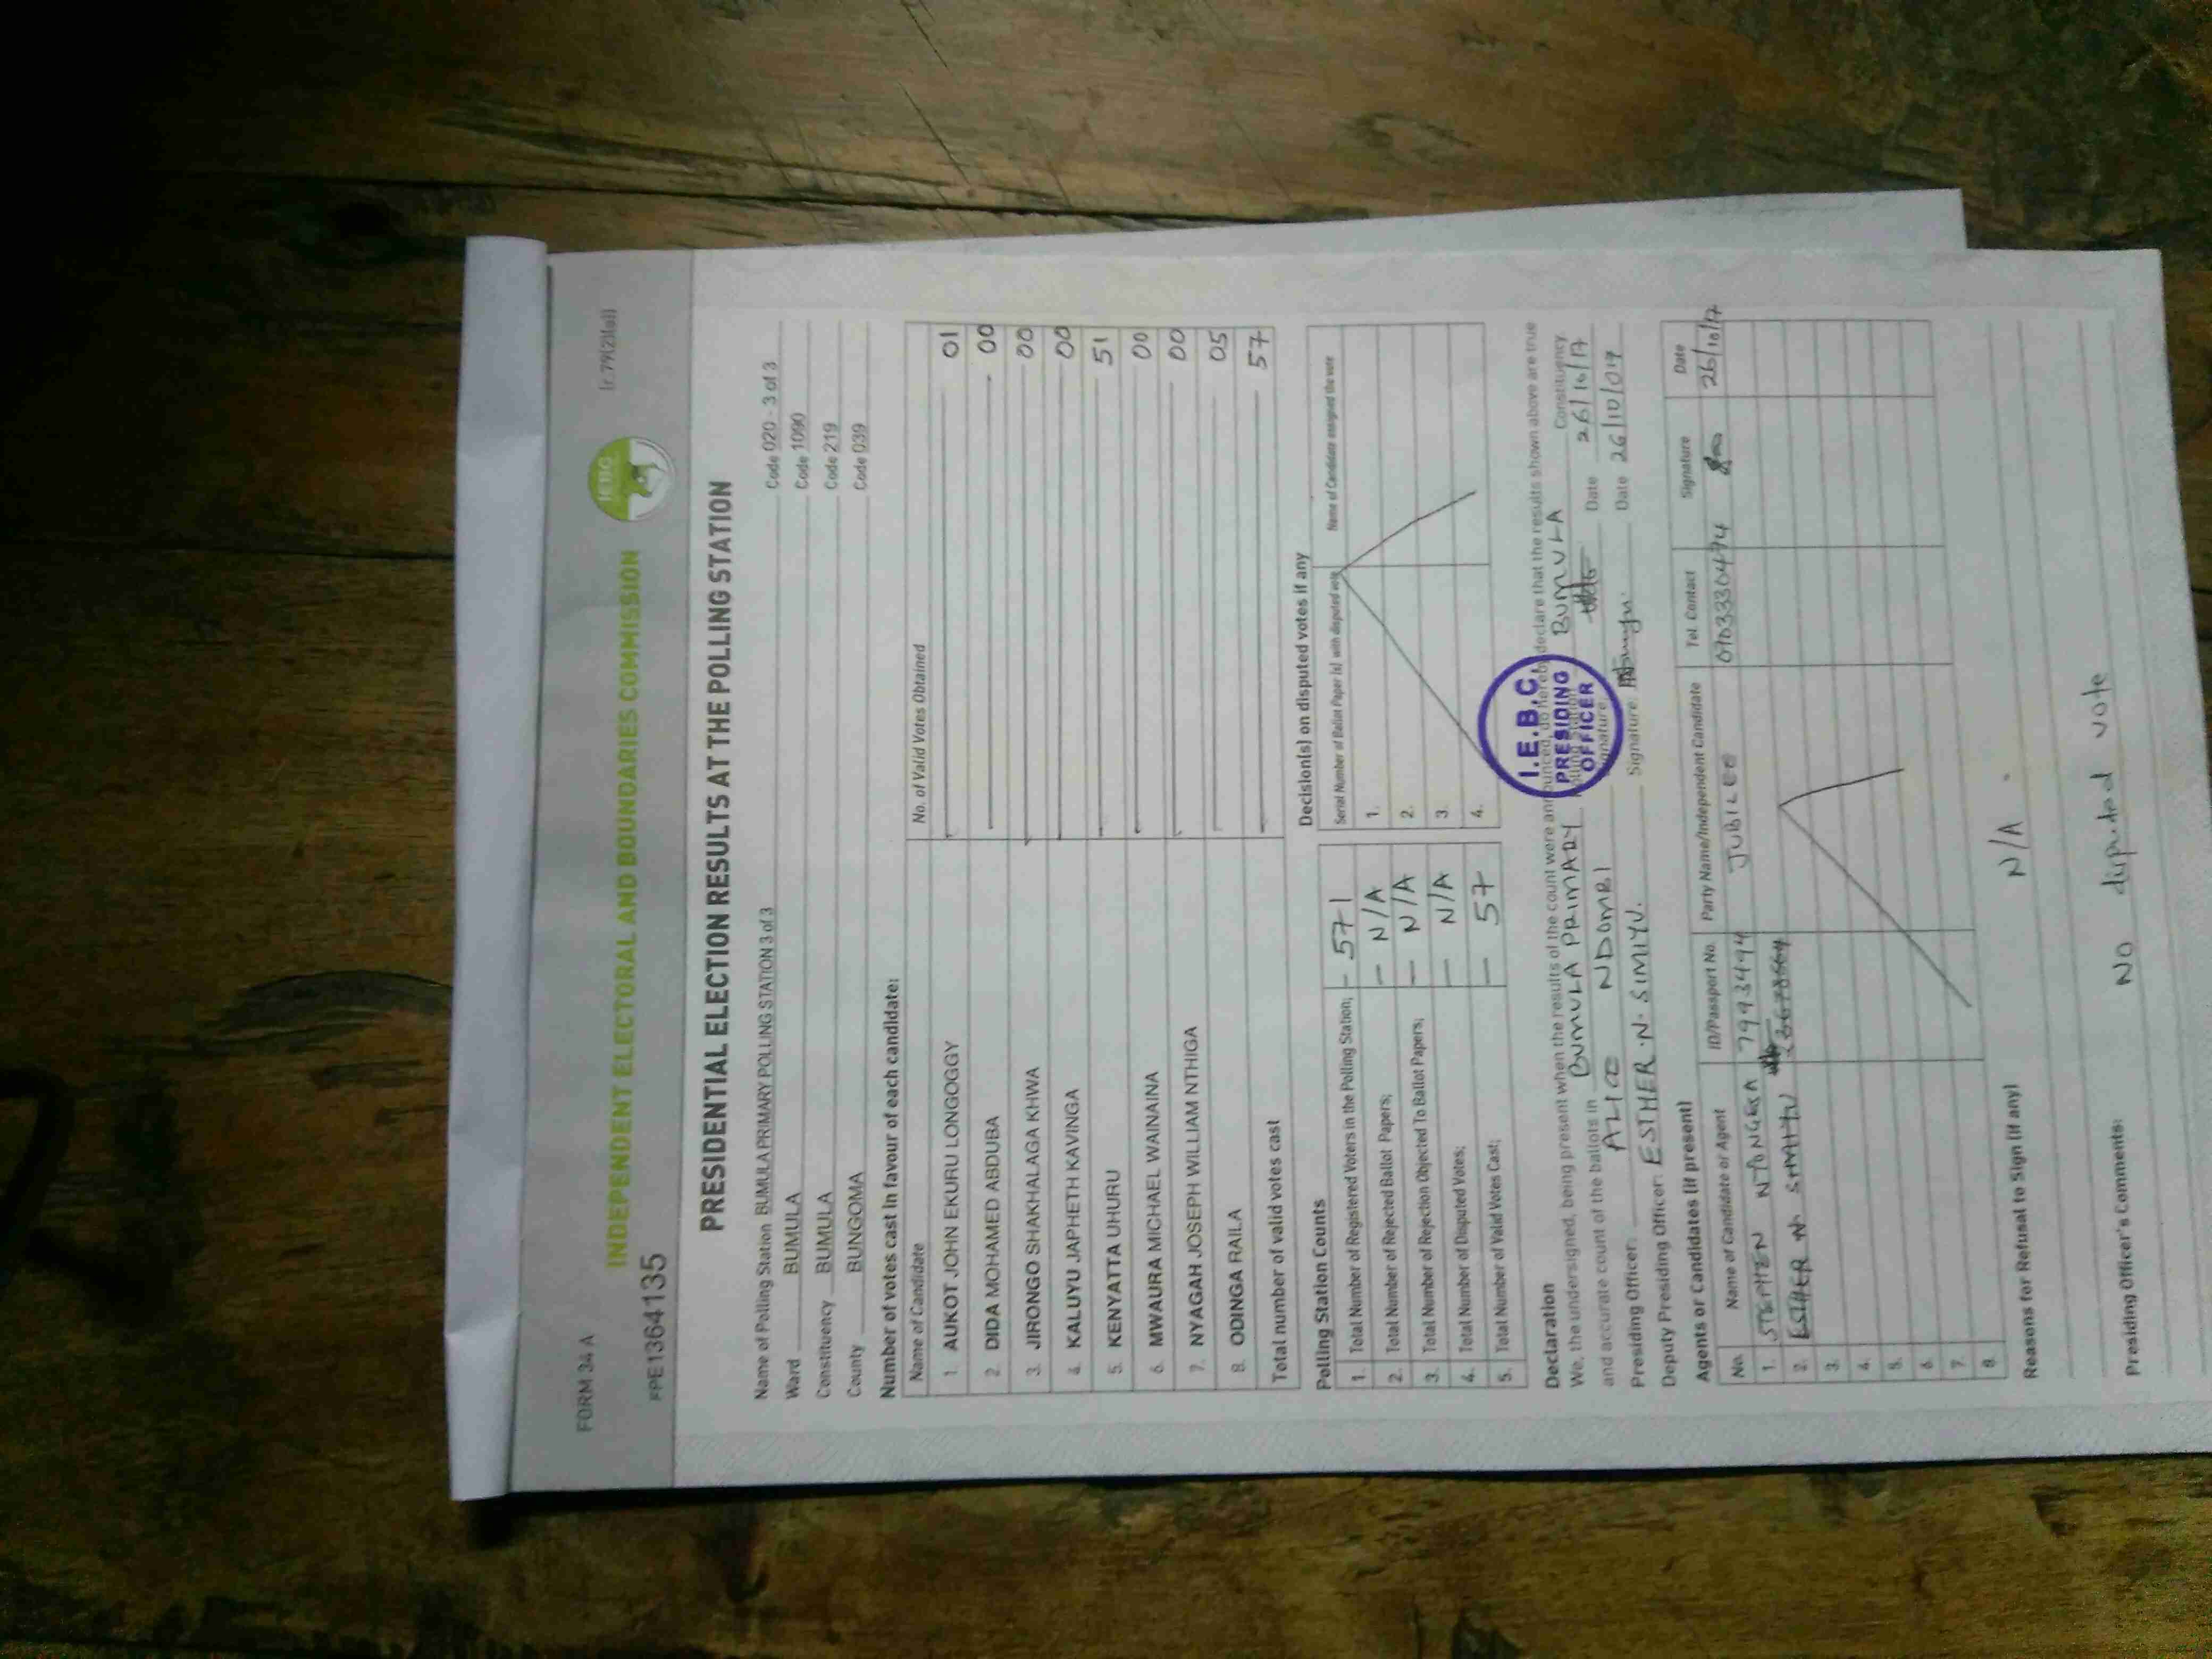 FORM 34 A
[r.79(2)(a)]
INDEPENDENT ELECTORAL AND BOUNDARIES COMMISSION
IEBC
PPE1364135
PRESIDENTIAL ELECTION RESULTS AT THE POLLING STATION
Name of Polling Station BUMULA PRIMARY POLLING STATION 3 of 3 Code 020 - 3 of 3
Ward BUMULA Code 1090
Constituency BUMULA Code 219
County BUNGOMA Code 039
Number of votes cast in favour of each candidate:
Name of Candidate No. of Valid Votes Obtained
1. AUKOT JOHN EKURU LONGOGGY 01
2. DIDA MOHAMED ABDUBA 00
3. JIRONGO SHAKHALAGA KHWA 00
4. KALUYU JAPHETH KAVINGA 00
5. KENYATTA UHURU 51
6. MWAURA MICHAEL WAINAINA 00
7. NYAGAH JOSEPH WILLIAM NTHIGA 00
8. ODINGA RAILA 05
Total number of valid votes cast 57
Polling Station Counts
1. Total Number of Registered Voters in the Polling Station; - 571
2. Total Number of Rejected Ballot Papers; - N/A
3. Total Number of Rejection Objected To Ballot Papers; - N/A
4. Total Number of Disputed Votes; - N/A
5. Total Number of Valid Votes Cast; - 57
Decision(s) on disputed votes if any
Serial Number of Ballot Paper (s) with disputed vote Name of Candidate assigned the vote
1.
2.
3.
4.
Declaration
We, the undersigned, being present when the results of the count were announced, do hereby declare that the results shown above are true
and accurate count of the ballots in BUMULA PRIMARY Polling Station BUMULA Constituency.
Presiding Officer: NDOMBI Signature Date 26/10/17
Deputy Presiding Officer: ESTHER .N. SIMIYU. Signature Date 26/10/017
I.E.B.C
PRESIDING
OFFICER
Agents or Candidates (if present)
No. Name of Candidate or Agent ID/Passport No. Party Name/Independent Candidate Tel. Contact Signature Date
1. STEPHEN 7993494 JUBILEE 26/10/17
2. ESTHER N. SIMIYU
3.
4.
5.
6.
7.
8.
Reasons for Refusal to Sign (if any)
N/A .
Presiding Officer's Comments:
No disputed vote